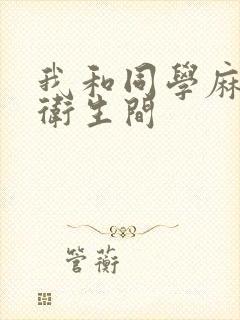 我和同學麻
衛生間
管蘅